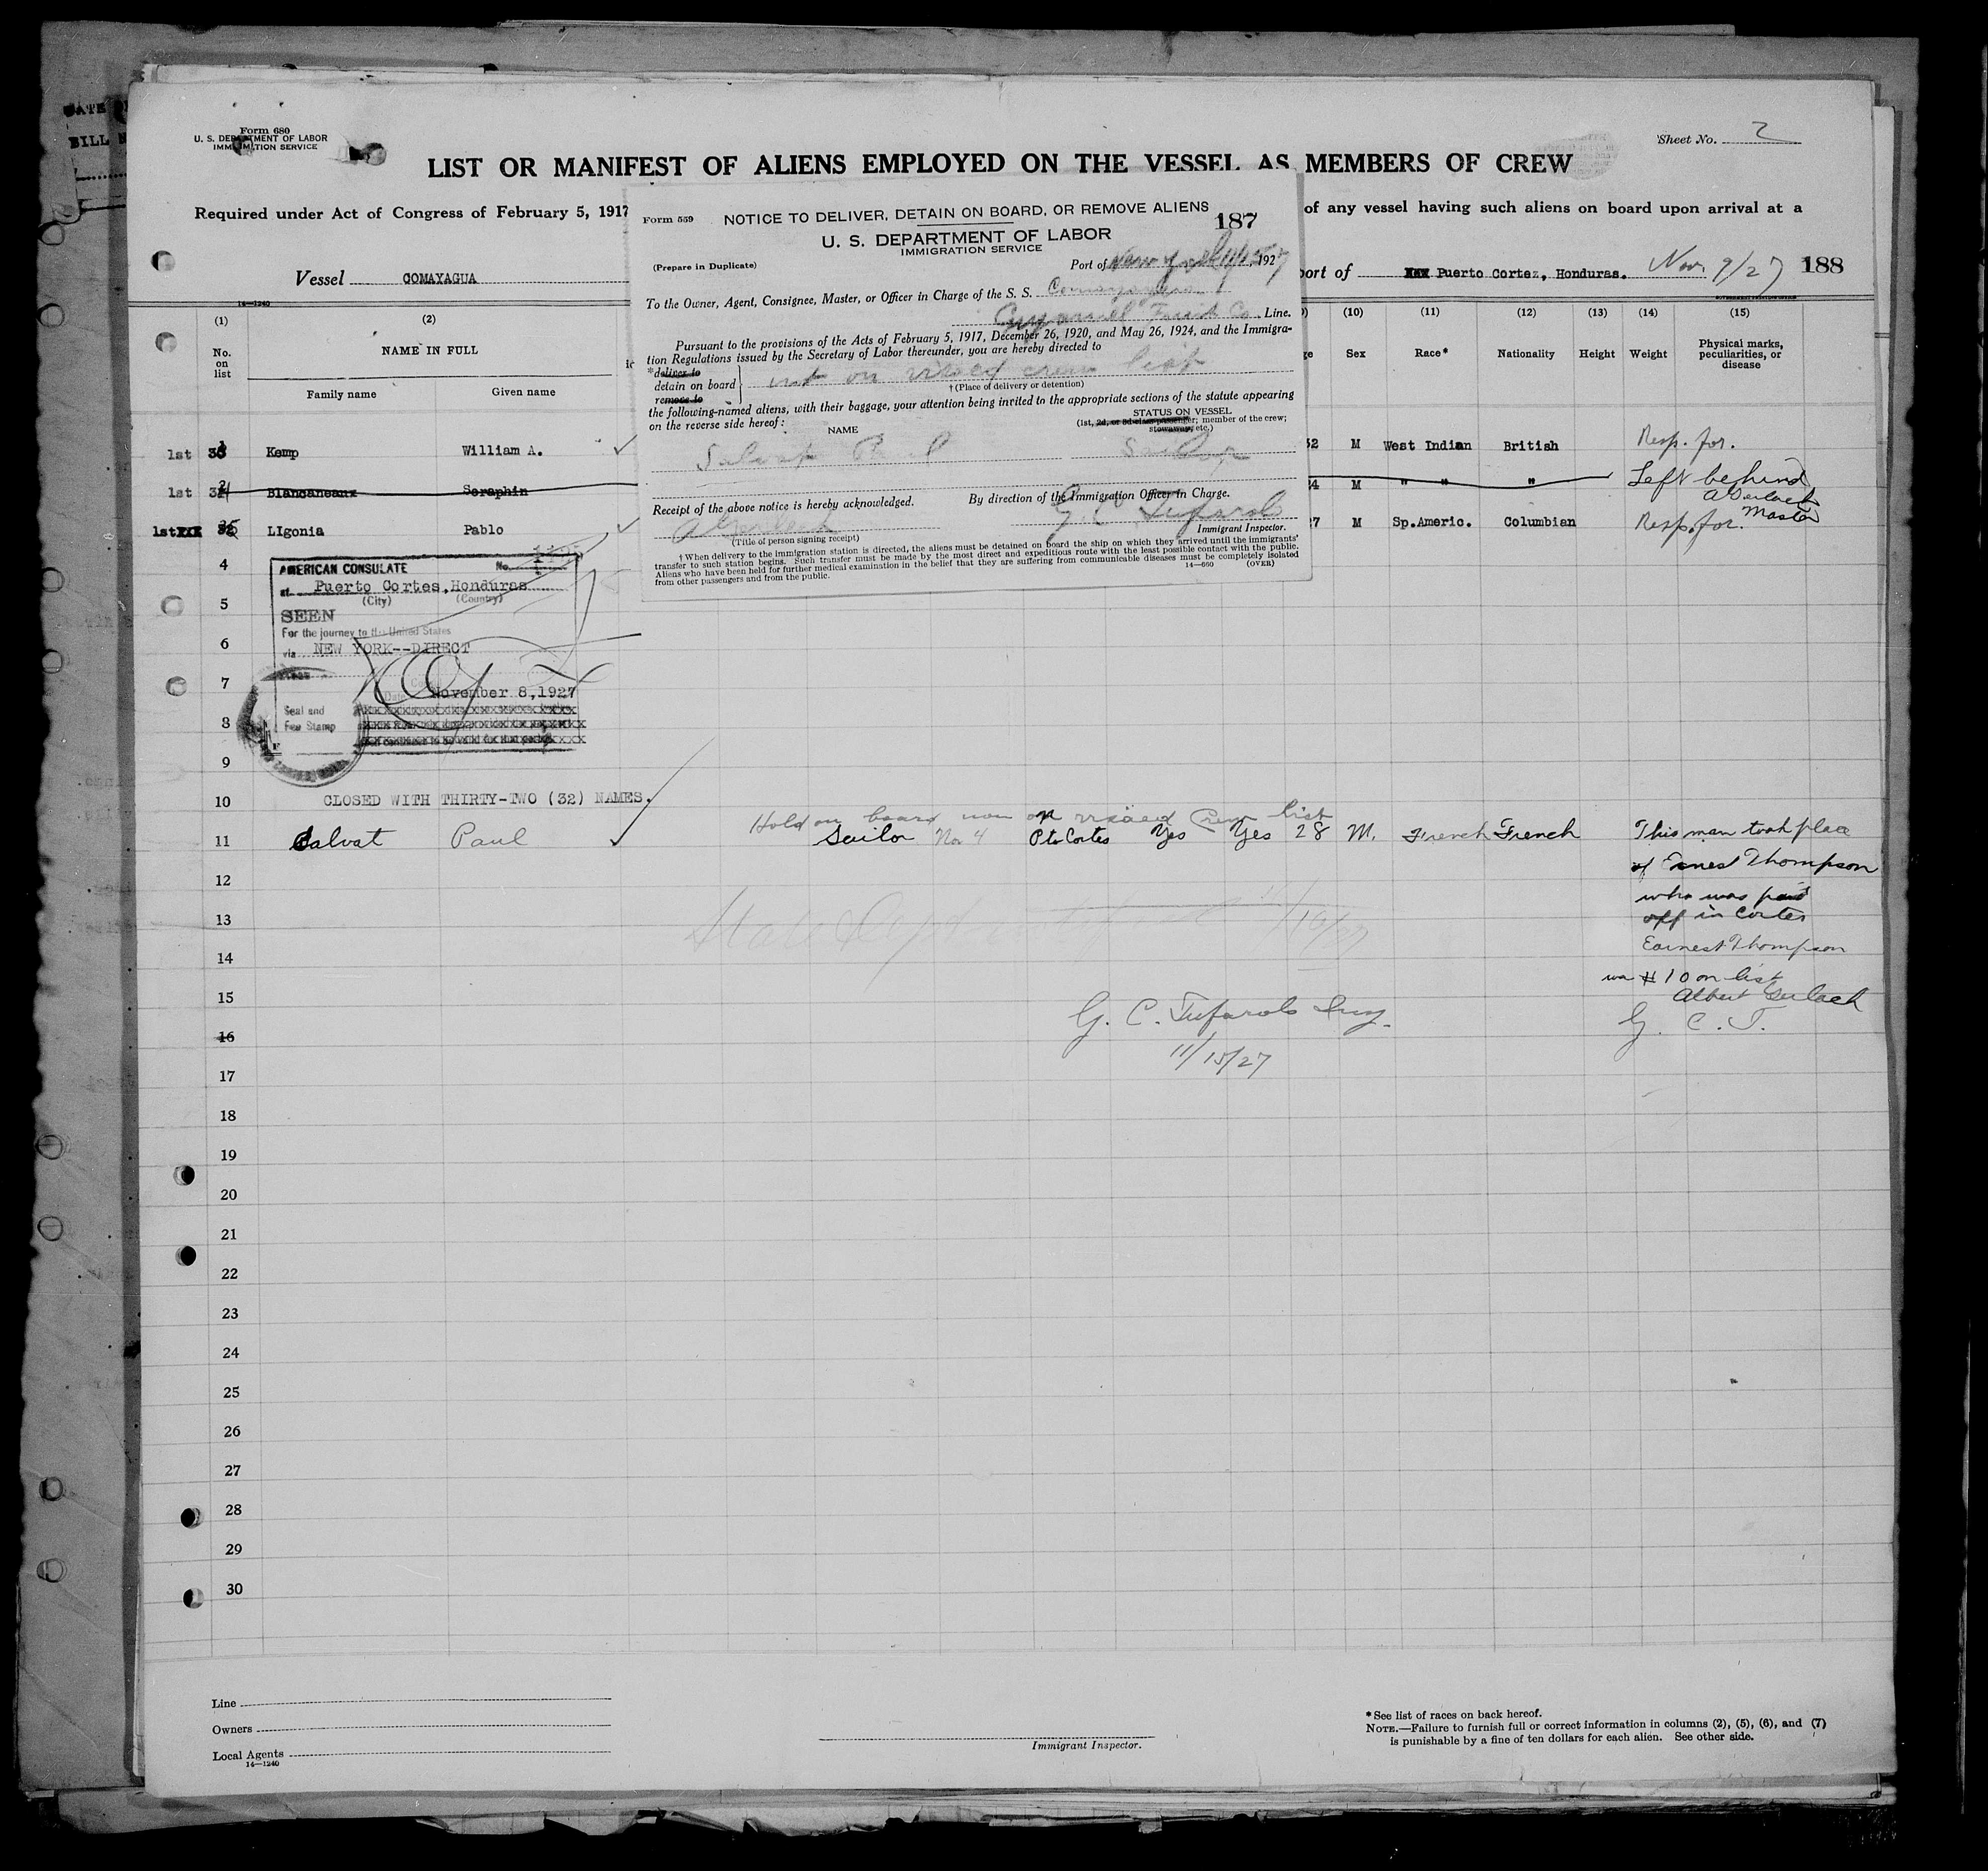 Form 680
U. S. DEPARTMENT OF LABOR
IMMIGRATION SERVICE
Sheet No. 2
LIST OR MANIFEST OF ALIENS EMPLOYED ON THE VESSEL AS MEMBERS OF CREW
Required under Act of Congress of February 5, 1917
of any vessel having such aliens on board upon arrival at a
Vessel COMAYAGUA
port of Puerto Cortez, Honduras. Nov. 9/27 188
14—1240
Form 559
NOTICE TO DELIVER, DETAIN ON BOARD, OR REMOVE ALIENS
187
U. S. DEPARTMENT OF LABOR
IMMIGRATION SERVICE
(Prepare in Duplicate)
Port of New York 11/15 1927
To the Owner, Agent, Consignee, Master, or Officer in Charge of the S. S. Comayagua
Cuyamel Fruit Co. Line.
Pursuant to the provisions of the Acts of February 5, 1917, December 26, 1920, and May 26, 1924, and the Immigra-
tion Regulations issued by the Secretary of Labor thereunder, you are hereby directed to
*deliver to
detain on board
remove to
not on visaed crew list
† (Place of delivery or detention)
the following-named aliens, with their baggage, your attention being invited to the appropriate sections of the statute appearing
on the reverse side hereof:
NAME
STATUS ON VESSEL
(1st, 2d, or 3d class passenger; member of the crew;
stowaway, etc.)
Salvat Paul Sailor
Receipt of the above notice is hereby acknowledged.
By direction of the Immigration Officer in Charge.
A Gerlach
G. C. Tufarolo
(Title of person signing receipt)
Immigrant Inspector.
† When delivery to the immigration station is directed, the aliens must be detained on board the ship on which they arrived until the immigrants'
transfer to such station begins. Such transfer must be made by the most direct and expeditious route with the least possible contact with the public.
Aliens who have been held for further medical examination in the belief that they are suffering from communicable diseases must be completely isolated
from other passengers and from the public.
14—660 (OVER)
(1) (2) (10) (11) (12) (13) (14) (15)
No. on list
NAME IN FULL
Family name Given name
Sex Race* Nationality Height Weight
Physical marks, peculiarities, or disease
1st Kemp William A. 32 M West Indian British Resp. for.
1st Blancaneaux Seraphin 24 M " " " Left behind
A Gerlach
Master
1st LIgonia Pablo 27 M Sp.Americ. Columbian Resp. for.
4
AMERICAN CONSULATE No.
at Puerto Cortes, Honduras
(City) (Country)
5
SEEN
For the journey to the United States
6
via NEW YORK--DIRECT
7
November 8, 1927
Seal and
Fee Stamp
8
9
10
CLOSED WITH THIRTY-TWO (32) NAMES.
Hold on board non on visaed Crew list
11 Salvat Paul Sailor Nov 4 Pto Cortes Yes Yes 28 M. French French This man took place
of Ernest Thompson
12
who was paid
13
off in Cortes
State Dept 11/10/27
14
Earnest Thompson
was #10 on list
15
Albert Gerlach
G. C. Tufarolo Insp.
G. C. T.
16
11/15/27
17
18
19
20
21
22
23
24
25
26
27
28
29
30
Line
Owners
Local Agents
14—1240
Immigrant Inspector.
* See list of races on back hereof.
NOTE.—Failure to furnish full or correct information in columns (2), (5), (6), and (7)
is punishable by a fine of ten dollars for each alien. See other side.